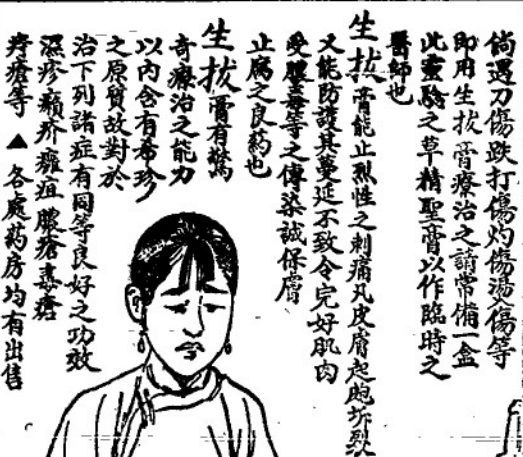 倘遇刀傷跌打傷灼傷燙傷等
即用生拔膏療治之請常備一盒
此靈驗之草精聖膏以作臨時之
醫師也
生拔膏能止烈性之刺痛凡皮膚起皰坼裂
又能防護其蔓延不致令完好肌肉
受膿毒等之傳染誠保膚
止腐之良葯也
生拔膏有驚
奇療治之能力
以內含有希珍
之原質故對於
治下列諸症有同等良好之功效
濕疹癩疥癰疽膿瘡毒瘡
痔瘡等 ▲ 各處葯房均有出售